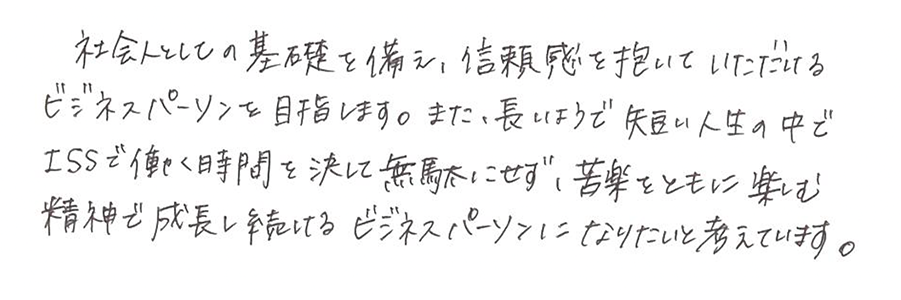 社会人としての基礎を備え、信頼感を抱いていただける
ビジネスパーソンを目指します。また、長いようで短い人生の中で
ISSで働く時間を決して無駄にせず、苦楽をともに楽しむ
精神で成長し続けるビジネスパーソンになりたいと考えています。